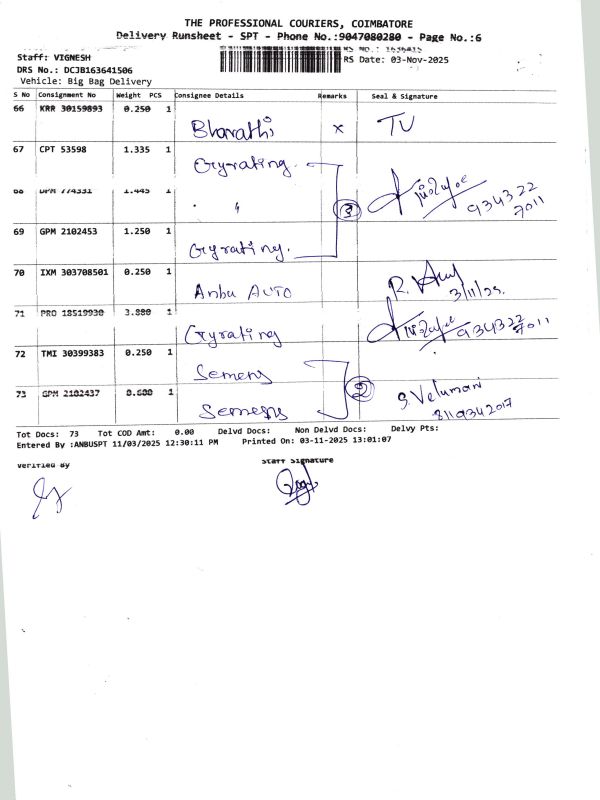 THE PROFESSIONAL COURIERS, COIMBATORE
Delivery Runsheet - SPT - Phone No.:9047080280 - Page No.:6
Staff: VIGNESH
DRS No.: DCJB163641506 RS Date: 03-Nov-2025
Vehicle: Big Bag Delivery
S No Consignment No Weight PCS Consignee Details Remarks Seal & Signature
66 KRR 30159893 0.250 1 Bharathi x TU
67 CPT 53598 1.335 1 Gyrating
68 DPM 774331 1.445 1 " 3 934322
7011
69 GPM 2102453 1.250 1 Gyrating.
70 IXM 303708501 0.250 1 Anbu AUTO R.
3/11/25.
71 PRO 18519930 3.880 1 Gyrating 934322
7011
72 TMI 30399383 0.250 1 Semens
73 GPM 2102437 0.600 1 Semens 2 S. Velumani
3119342017
Tot Docs: 73 Tot COD Amt: 0.00 Delvd Docs: Non Delvd Docs: Delvy Pts:
Entered By :ANBUSPT 11/03/2025 12:30:11 PM Printed On: 03-11-2025 13:01:07
Verified By Staff Signature